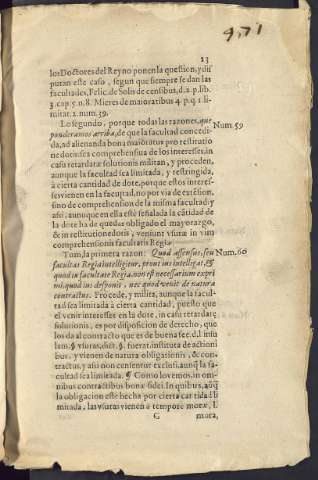 4,71
13
los Doctores del Reyno ponen la question, y disputan este caso, segun que siempre se dan las
facultades, Felic. de Solis de censibus, d. 2. p. lib.
3. cap. 5. n. 8. Mieres de maioratibus 4. p. q. 1. limitat. 2. num. 39.
Lo segundo, porque todas las razones, que
ponderamos arriba, de que la facultad concedida, ad alienanda bona maioratus pro restitutione dotis sea comprehensiua de los interesses, in
casu retardatæ solutionis militan, y proceden,
aunque la facultad sea limitada, y restringida,
à cierta cantidad de dote, porque estos interesses vienen en la facultad, no por via de extension,
sino de comprehension de la misma facultad: y
assi, aunque en ella estè señalada la cãtidad de
la dote ha de quedar obligado el mayorazgo,
& in restitutione dotis, veniunt vsuræ in vim
comprehensionis facultatis Regiæ.
Num. 59
Tom. la primera razon: Quod assensus, seu
facultas Regia intelligitur, prout ius intelligat, &
quod in facultate Regia non est necessarium exprimi, quod ius disponit, nec quod venit de natura
contractus. Procede, y milita, aunque la facultad sea limitada à cierta cantidad, puesto que
el venir interesses en la dote, in casu retardatæ
solutionis, es por disposicion de derecho, que
los da al contracto que es de buena fee. d. l. in insulam. §. vsuras, dict. §. fuerat. instituta de actionibus. y vienen de natura obligationis, & contractus, y assi non censentur exclusi, aunq̃ la facultad sea limitada. ¶ Como lo vemos, in omnibus contractibus bonæ fidei. In quibus, aunq̃
la obligacion este hecha por cierta cantidad limitada, las vsuras vienen à tempore moræ, l.
Num. 60
C
mora,